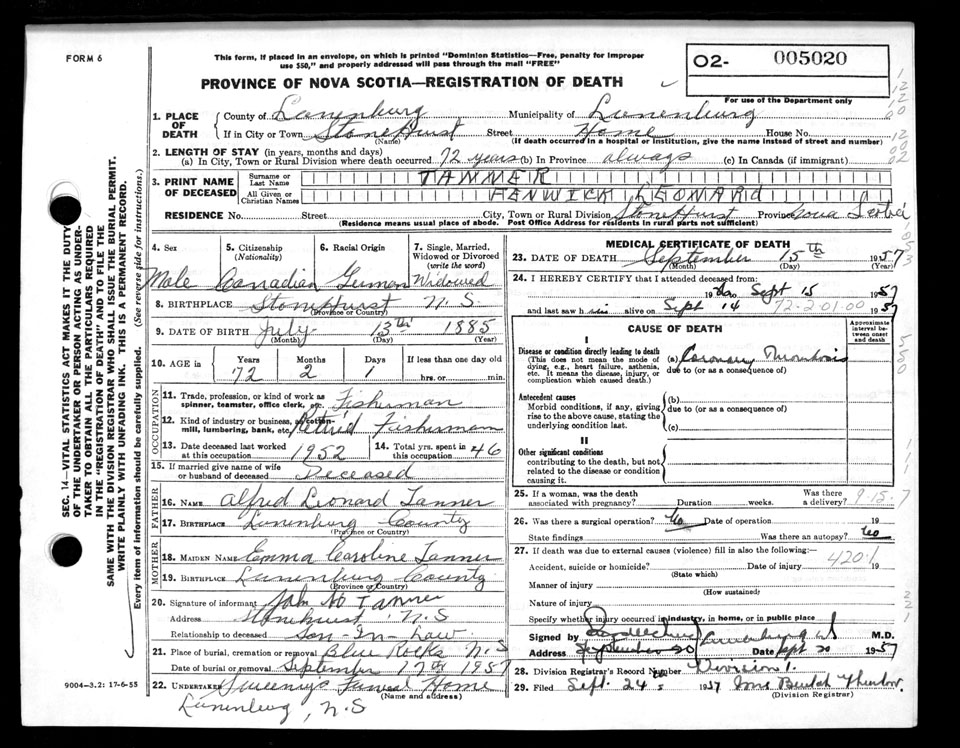 FORM 6
This form, if placed in an envelope, on which is printed "Dominion Statistics—Free, penalty for improper
use $50," and properly addressed will pass through the mail "FREE"
PROVINCE OF NOVA SCOTIA—REGISTRATION OF DEATH
02- 005020
For use of the Department only
1. PLACE OF DEATH County of Lunenburg Municipality of Lunenburg
If in City or Town Stonehurst Street Home House No.
(Name) (If death occurred in a hospital or institution, give the name instead of street and number)
2. LENGTH OF STAY (in years, months and days)
(a) In City, Town or Rural Division where death occurred 72 years (b) In Province always (c) In Canada (if immigrant)
3. PRINT NAME OF DECEASED Surname or Last Name TANNER
All Given or Christian Names FENWICK LEONARD
RESIDENCE No. Street City, Town or Rural Division StoneHurst Province Nova Scotia
(Residence means usual place of abode. Post Office Address for residents in rural parts not sufficient)
4. Sex 5. Citizenship (Nationality) 6. Racial Origin 7. Single, Married, Widowed or Divorced (write the word)
Male Canadian German Widowed
8. BIRTHPLACE Stonehurst N.S.
(Province or Country)
9. DATE OF BIRTH July 13th 1885
(Month) (Day) (Year)
10. AGE in Years Months Days If less than one day old
72 2 1 hrs. or min.
OCCUPATION
11. Trade, profession, or kind of work as spinner, teamster, office clerk, etc. Fisherman
12. Kind of industry or business, as cotton-mill, lumbering, bank, etc. Retired Fisherman
13. Date deceased last worked at this occupation 1952 14. Total yrs. spent in this occupation 46
15. If married give name of wife or husband of deceased Deceased
FATHER
16. NAME Alfred Leonard Tanner
17. BIRTHPLACE Lunenburg County
(Province or Country)
MOTHER
18. MAIDEN NAME Emma Caroline Tanner
19. BIRTHPLACE Lunenburg County
(Province or Country)
20. Signature of informant Tanner
Address Stonehurst N.S
Relationship to deceased Son-In-Law
21. Place of burial, cremation or removal Blue Rocks N.S
Date of burial or removal September 17th 1957
22. UNDERTAKER Sweeny's Funeral Home
(Name and address)
Lunenburg, N.S
9004-3.2: 17-6-55
SEC. 14—VITAL STATISTICS ACT MAKES IT THE DUTY
OF THE UNDERTAKER OR PERSON ACTING AS UNDER-
TAKER TO OBTAIN ALL THE PARTICULARS REQUIRED
IN THE "REGISTRATION OF DEATH" AND TO FILE THE
SAME WITH THE DIVISION REGISTRAR WHO SHALL ISSUE THE BURIAL PERMIT.
WRITE PLAINLY WITH UNFADING INK. THIS IS A PERMANENT RECORD.
Every item of information should be carefully supplied. (See reverse side for instructions.)
MEDICAL CERTIFICATE OF DEATH
23. DATE OF DEATH September 15th 1957
(Month) (Day) (Year)
24. I HEREBY CERTIFY that I attended deceased from:
19 to Sept 15 1957
and last saw h alive on Sept 14 72-2-01-00 1957
CAUSE OF DEATH
Approximate interval between onset and death
I
Disease or condition directly leading to death
(This does not mean the mode of dying, e.g., heart failure, asthenia, etc. It means the disease, injury, or complication which caused death.)
(a) Coronary Thrombosis
due to (or as a consequence of)
Antecedent causes
Morbid conditions, if any, giving rise to the above cause, stating the underlying condition last.
(b)
due to (or as a consequence of)
(c)
II
Other significant conditions
contributing to the death, but not related to the disease or condition causing it.
25. If a woman, was the death associated with pregnancy? Duration weeks. Was there a delivery? 9-15-7
26. Was there a surgical operation? No Date of operation 19
State findings Was there an autopsy? No
27. If death was due to external causes (violence) fill in also the following:
Accident, suicide or homicide? Date of injury 19 420.1
(State which)
Manner of injury
(How sustained)
Nature of injury
Specify whether injury occurred in industry, in home, or in public place
Signed by M.D.
Address Date Sept 20 1957
28. Division Registrar's Record Number Division 1.
29. Filed Sept. 24 1957 Mrs Beulah
(Division Registrar)